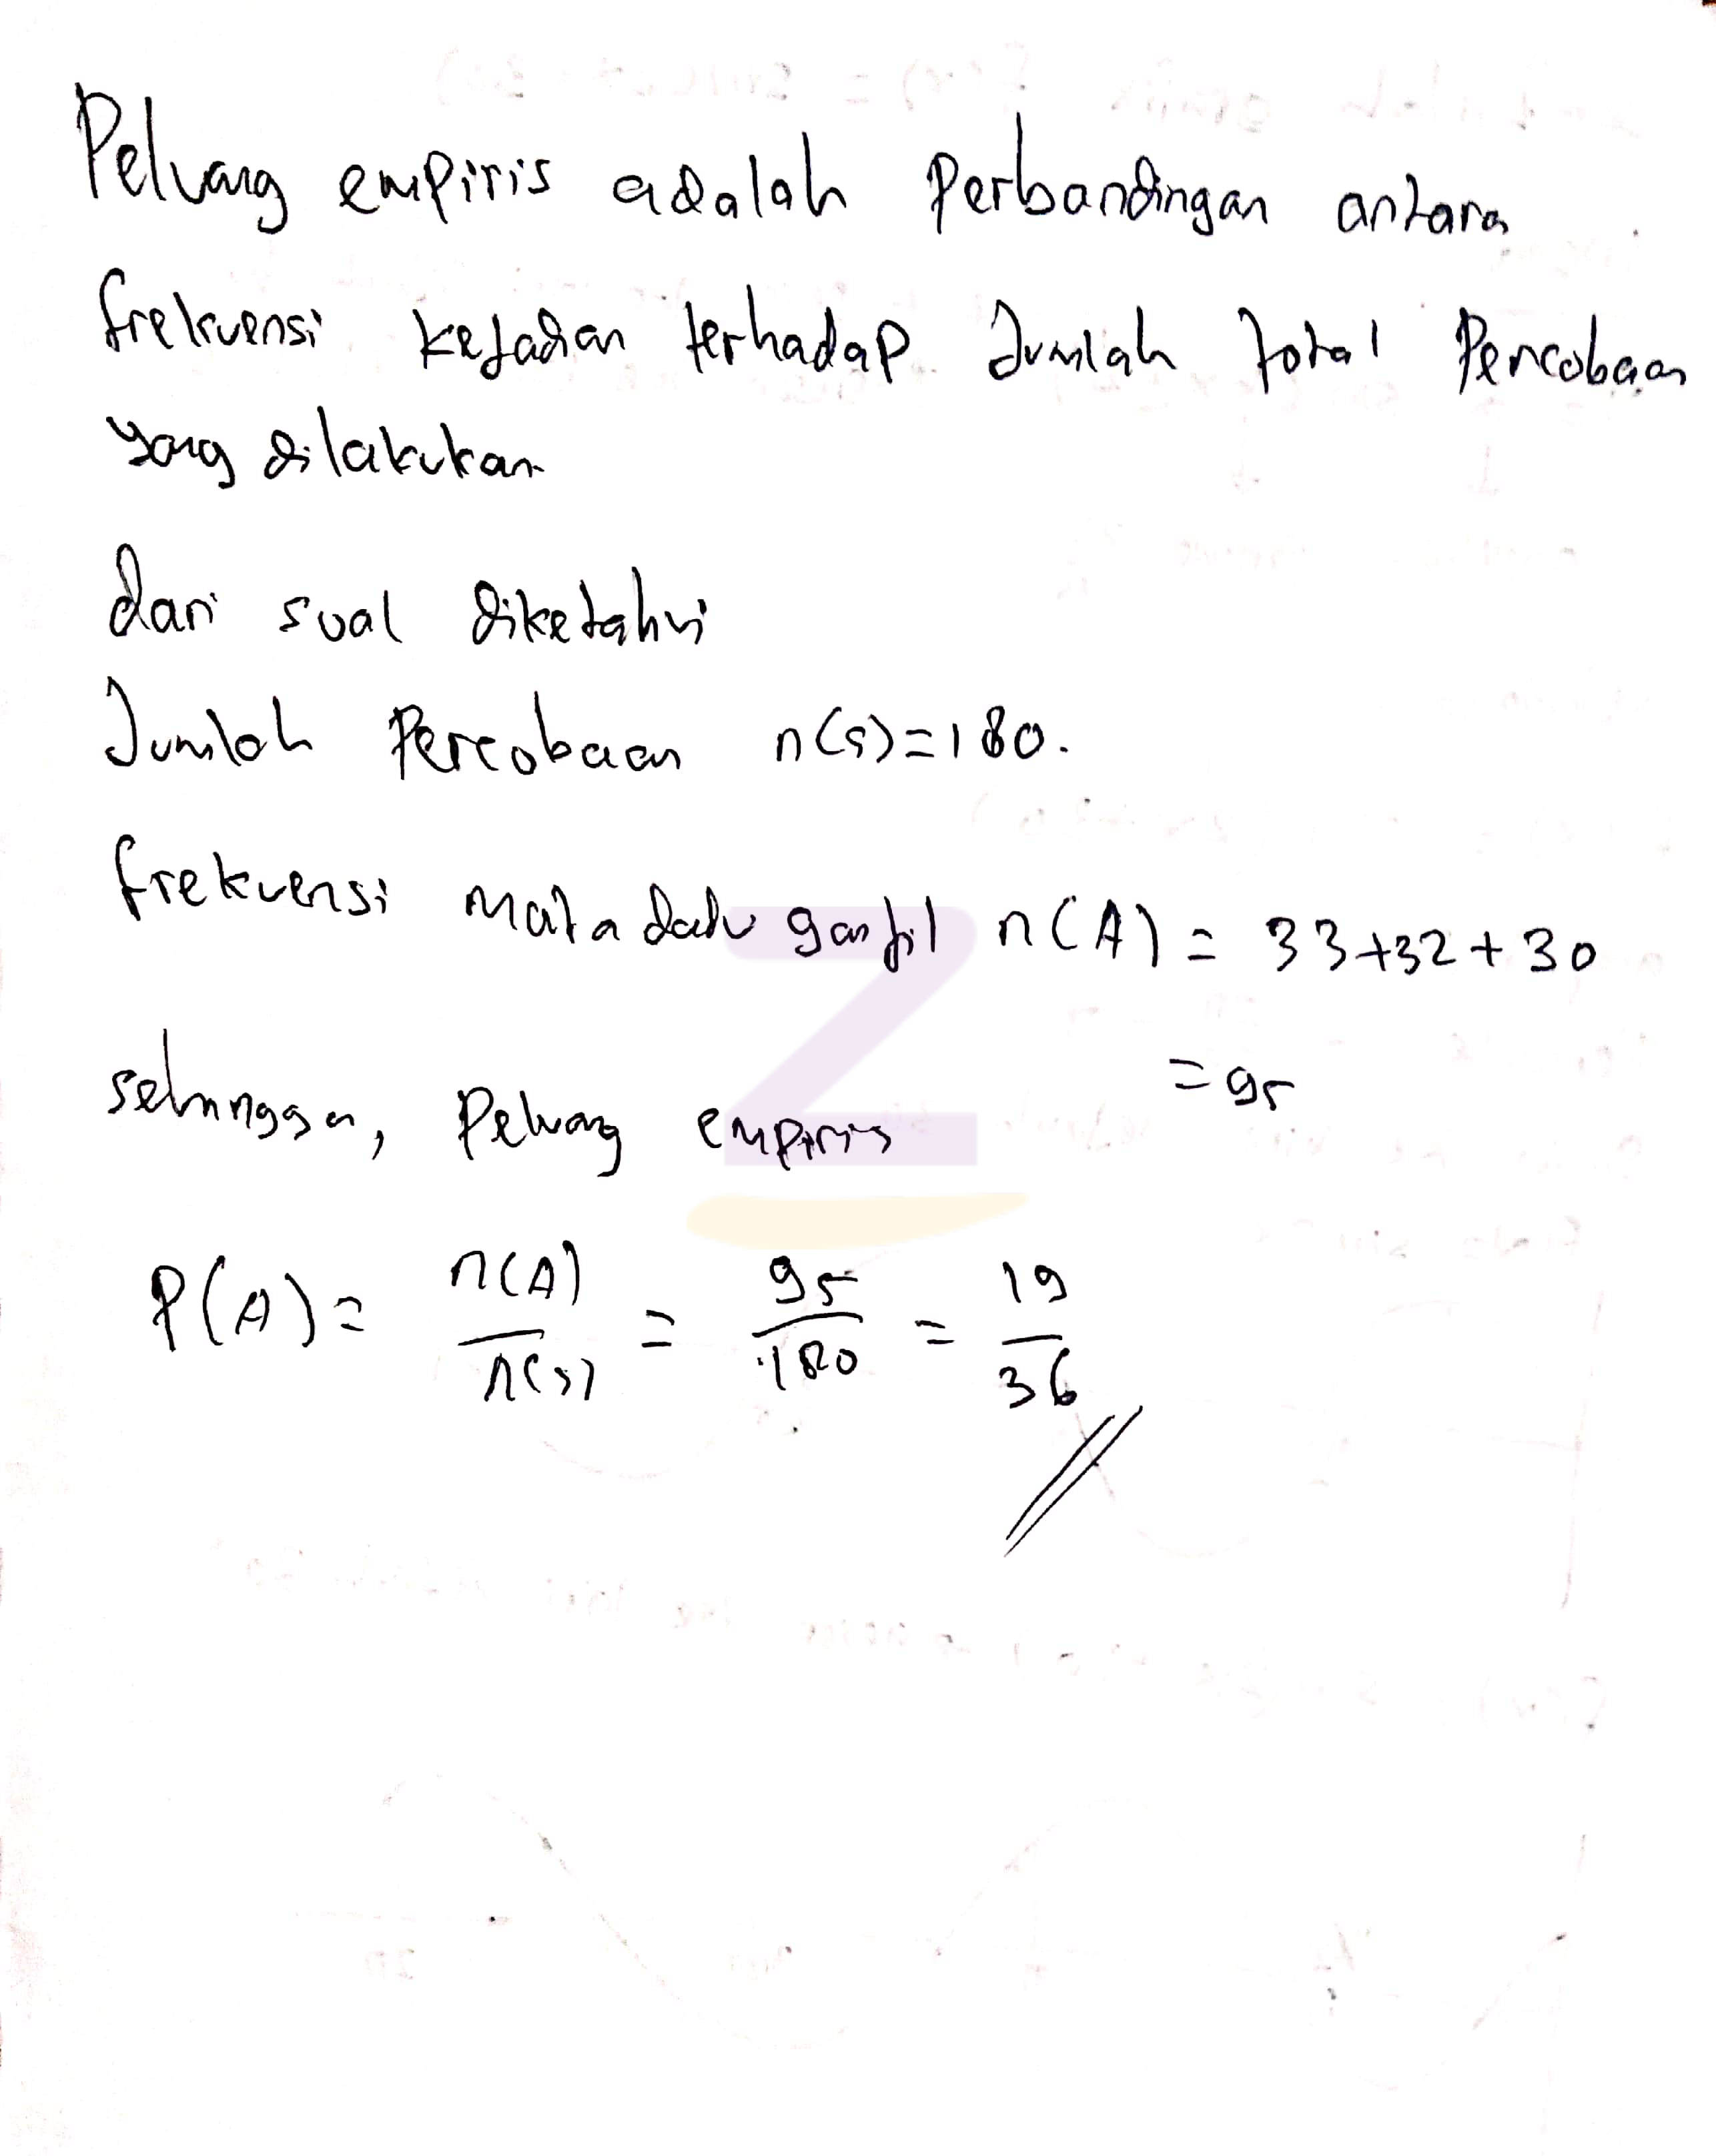 Peluang empiris adalah Perbandingan antara
frekuensi kejadian terhadap Jumlah total Percobaan
yang dilakukan
dari soal diketahui
Jumlah Percobaan n(s)=180.
frekuensi mata dadu ganjil n(A) = 33+32+30
=95
sehingga, Peluang empiris
P(A)= n(A)/n(s) = 95/180 = 19/36